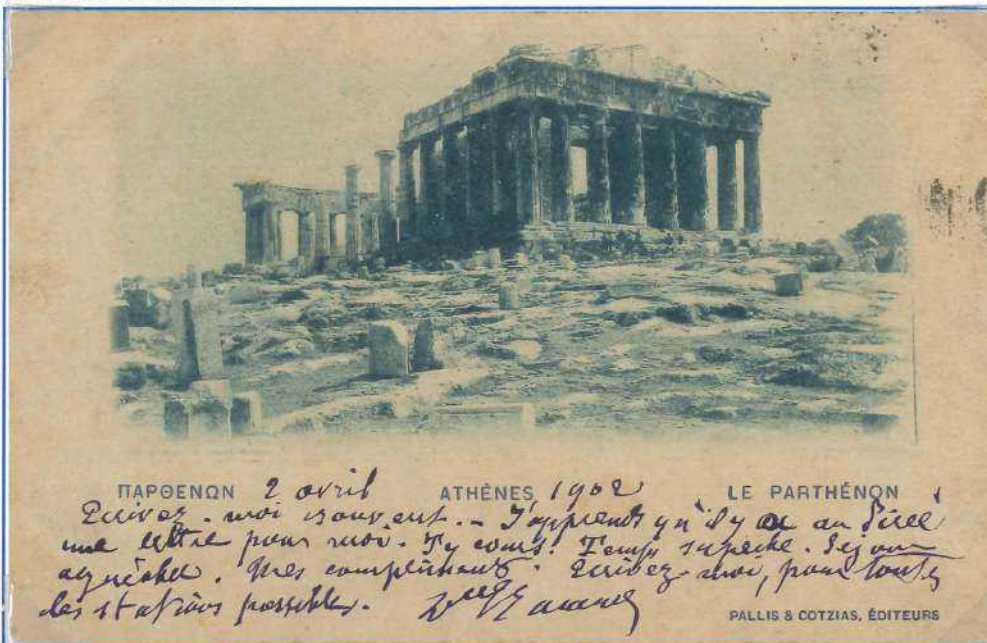 ΠΑΡΘΕΝΩΝ 2 avril ATHÈNES 1902 LE PARTHÉNON
Ecrivez-moi souvent. - J'apprends qu'il y a au Pirée
une lettre pour moi. J'y cours! Temps superbe. Séjour
agréable. Mes compliments. Ecrivez-moi, pour toutes
les stations possibles.
PALLIS & COTZIAS, ÉDITEURS